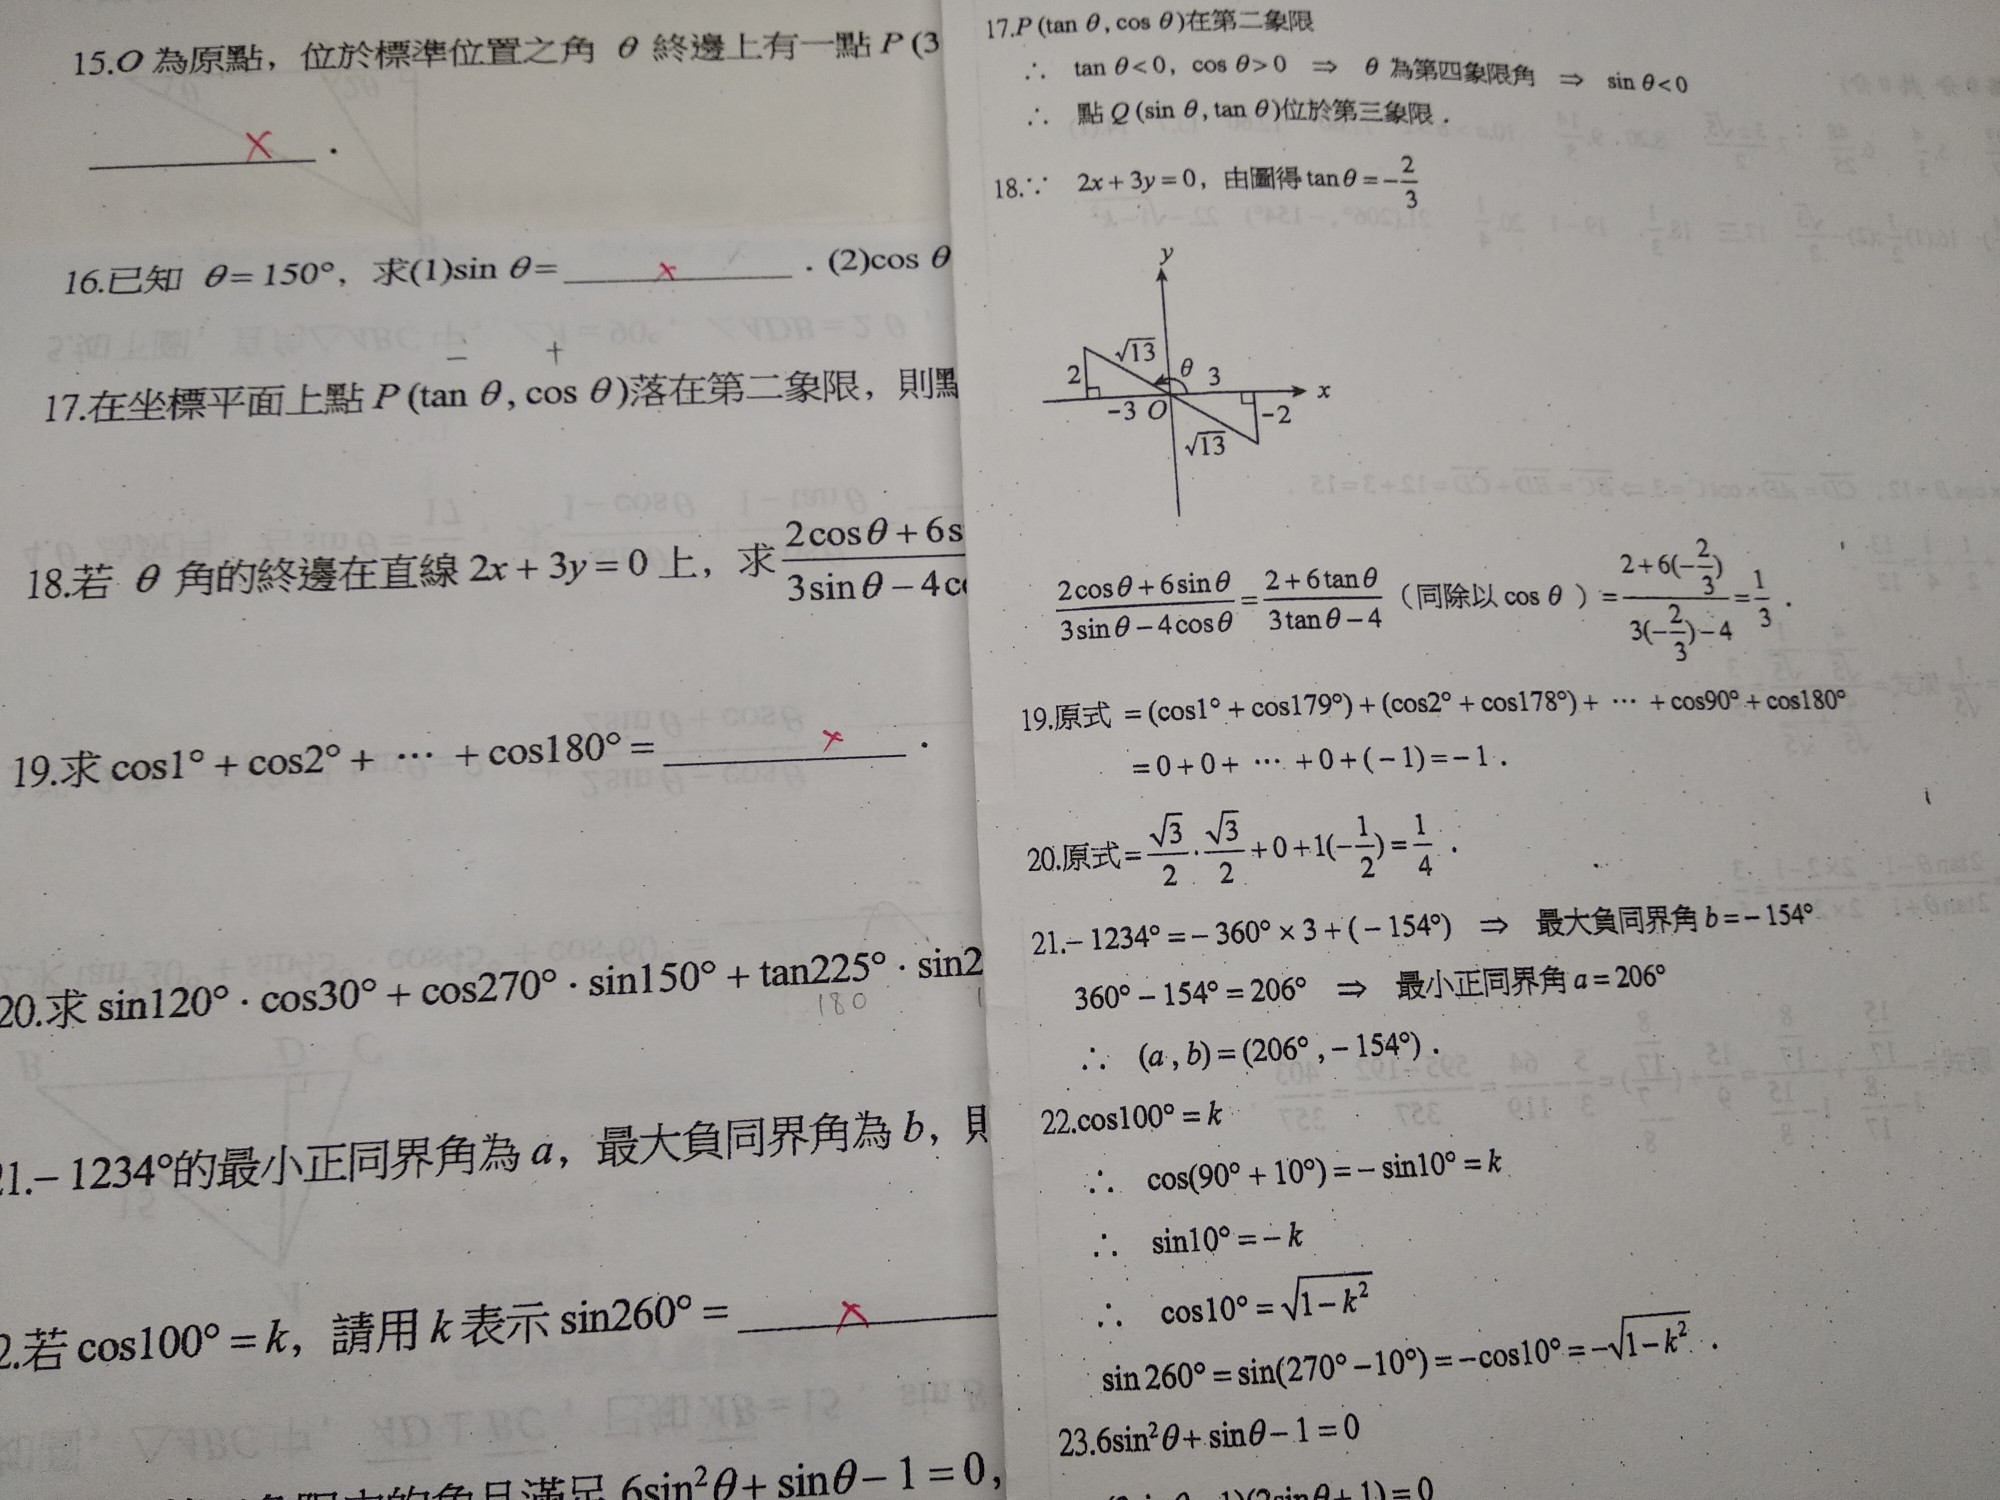 15.O 為原點，位於標準位置之角 θ 終邊上有一點 P (3
×
.
16.已知 θ = 150°，求(1)sin θ = × . (2)cos θ
− +
17.在坐標平面上點 P (tan θ , cos θ )落在第二象限，則點
18.若 θ 角的終邊在直線 2x + 3y = 0 上，求 (2cosθ + 6s)/(3sinθ − 4c
19.求 cos1° + cos2° + ⋯ + cos180° = × .
20.求 sin120° · cos30° + cos270° · sin150° + tan225° · sin2
180
21.− 1234°的最小正同界角為 a，最大負同界角為 b，則
2.若 cos100° = k，請用 k 表示 sin260° = ×
的角且滿足 6sin²θ + sinθ − 1 = 0，
17.P (tan θ , cos θ )在第二象限
∴ tan θ < 0，cos θ > 0 ⇒ θ 為第四象限角 ⇒ sin θ < 0
∴ 點 Q (sin θ , tan θ )位於第三象限 .
18.∵ 2x + 3y = 0，由圖得 tanθ = −2/3
y
√13
2
θ
3
x
−3
O
−2
√13
(2cosθ + 6sinθ)/(3sinθ − 4cosθ) = (2 + 6tanθ)/(3tanθ − 4)（同除以 cos θ ）= (2 + 6(−2/3))/(3(−2/3) − 4) = 1/3 .
19.原式 = (cos1° + cos179°) + (cos2° + cos178°) + ⋯ + cos90° + cos180°
= 0 + 0 + ⋯ + 0 + ( − 1) = − 1 .
20.原式 = √3/2 · √3/2 + 0 + 1(−1/2) = 1/4 .
21.− 1234° = − 360° × 3 + ( − 154°) ⇒ 最大負同界角 b = − 154°
360° − 154° = 206° ⇒ 最小正同界角 a = 206°
∴ (a , b) = (206° , − 154°) .
22.cos100° = k
∴ cos(90° + 10°) = − sin10° = k
∴ sin10° = − k
∴ cos10° = √(1 − k²)
sin 260° = sin(270° − 10°) = −cos10° = −√(1 − k²) .
23.6sin²θ + sinθ − 1 = 0